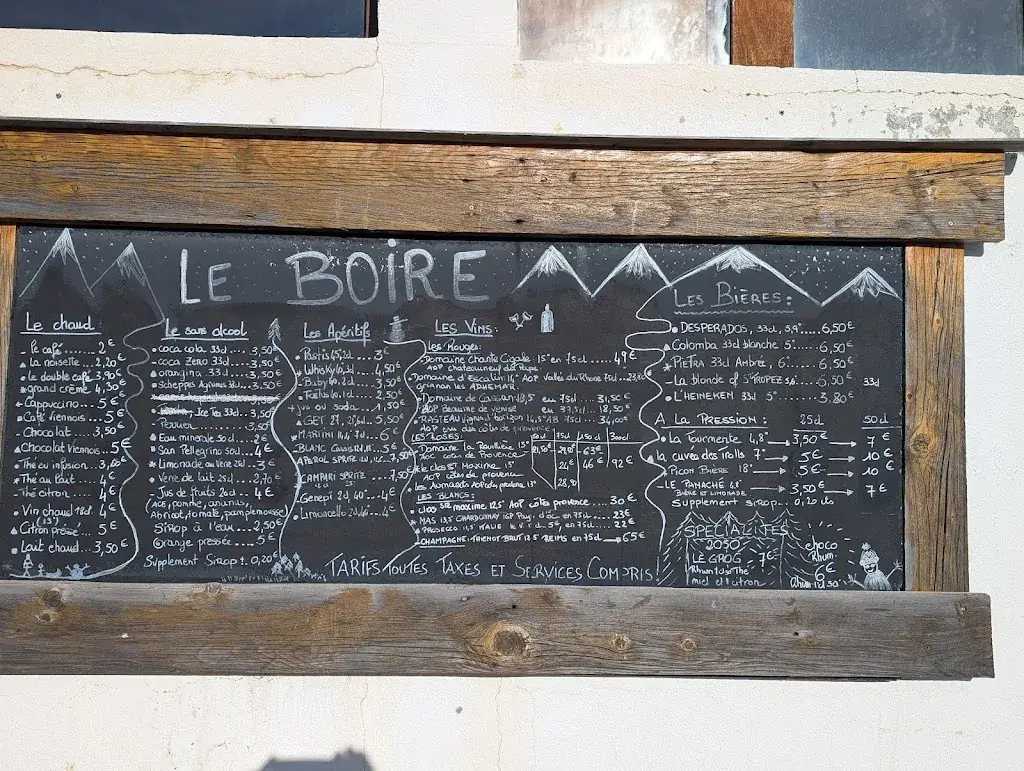 LE BOIRE
Le chaud
- Le café ..... 2 €
La noisette ... 2,20 €
le double café 3,90 €
grand crème 4,30 €
Cappuccino ... 5 €
Café viennois .. 5 €
Chocolat ..... 3,50 €
Chocolat Viennois 5 €
Thé ou infusion ... €
Thé au lait 4 €
Thé citron .. 4 €
Vin chaud 18cl 4 €
Citron pressé ... 5 €
Lait chaud ... 3,50 €
Le sans alcool
coca cola 33cl .... 3,50 €
coca ZERO 33cl ... 3,50 €
orangina 33cl .... 3,50 €
Scheppes Agrumes 33cl ... 3,50 €
Ice Tea 33cl. 3,50 €
Perrier ... 33cl 3,50 €
Eau minérale 50cl .. 2 €
San Pellegrino 50cl .. 4 €
Limonade au verre 25cl .. 3 €
Verre de lait 25cl .. 2,70 €
- Jus de fruits 20cl .. 4 €
ACE, pomme, ananas,
Abricot, tomate, pamplemousse)
SiROP à l'eau ... 2,50 €
Orange pressée ... 5 €
Supplément Sirop : 0,20 €
Les Apéritifs
Pastis 45, 2cl .. 3 €
Whisky 40, 3cl .. 4,50 €
Baby 40, 2cl .. 3,50 €
2,50 €
+ jus ou soda .. 1,50 €
GET 27,
MARTINI 6 €
BLANC Cassis 5 €
APEROL SPRITZ 7,50 €
CAMPARI SPRITZ 7,50 €
Genepi 2cl, 40° .... 4 €
Limoncello 2cl 4 €
LES Vins :
Les Rouges :
Domaine Chante Cigale 15° en 75cl ..... 49 €
AOP chateauneuf du Pape
Domaine d'Escalin 14° AOP Vallée du Rhone 75cl
grignan les ADHEMAR
Domaine de Cassan en 75cl .... 31,50 €
AOP Beaume de venise en 37,5cl .. 18,50 €
RASTEAU 14,5° AB 75cl .... 34,00 €
AOP
LES ROSÉS:
50cl 75cl 150cl 300cl
Domaine la Pauline 13°
coteaux de Provence 63 €
le clos STE MAXIME 13° 24 € 46 € 92 €
AOP côtes de provence
28,90
LES BLANCS:
Clos STE maxime 12,5 AOP côtes provence ..... 30 €
MAS 13,5 CHARDONNAY IGP Pays d'oc en 75cl ..... 23 €
PROSECCO 11,5 ITALIE en 75cl ..... 22 €
CHAMPAGNE: THIENOT BRUT 12,5 REIMS en 75cl 65 €
LES BIÈRES :
DESPERADOS, 33cl, 5,9° ..... 6,50 €
Colomba 33cl blanche 5° ... 6,50 €
PIETRA 33cl Ambrée, 6° .... 6,50 €
- La blonde of ST TROPEZ 5,6° ..... 6,50 33cl
L'HEINEKEN 33cl 5° ..... 3,80 €
A LA PRESSION : 25cl 50cl
La Tourmente 4,8° 3,50 € 7 €
la cuvée des trolls 7° 5 € 10 €
PICON BIÈRE 18° 5 € 10 €
- LE PANACHÉ 3,50 € 7 €
BIÈRE ET LIMONADE
Supplément sirop .... 0,20 cts
SPECIALITÉS
2050
LE GROG 7 €
Rhum Thé
miel citron
choco
Rhum
6 €
TARIFS TOUTES TAXES ET SERVICES COMPRIS !